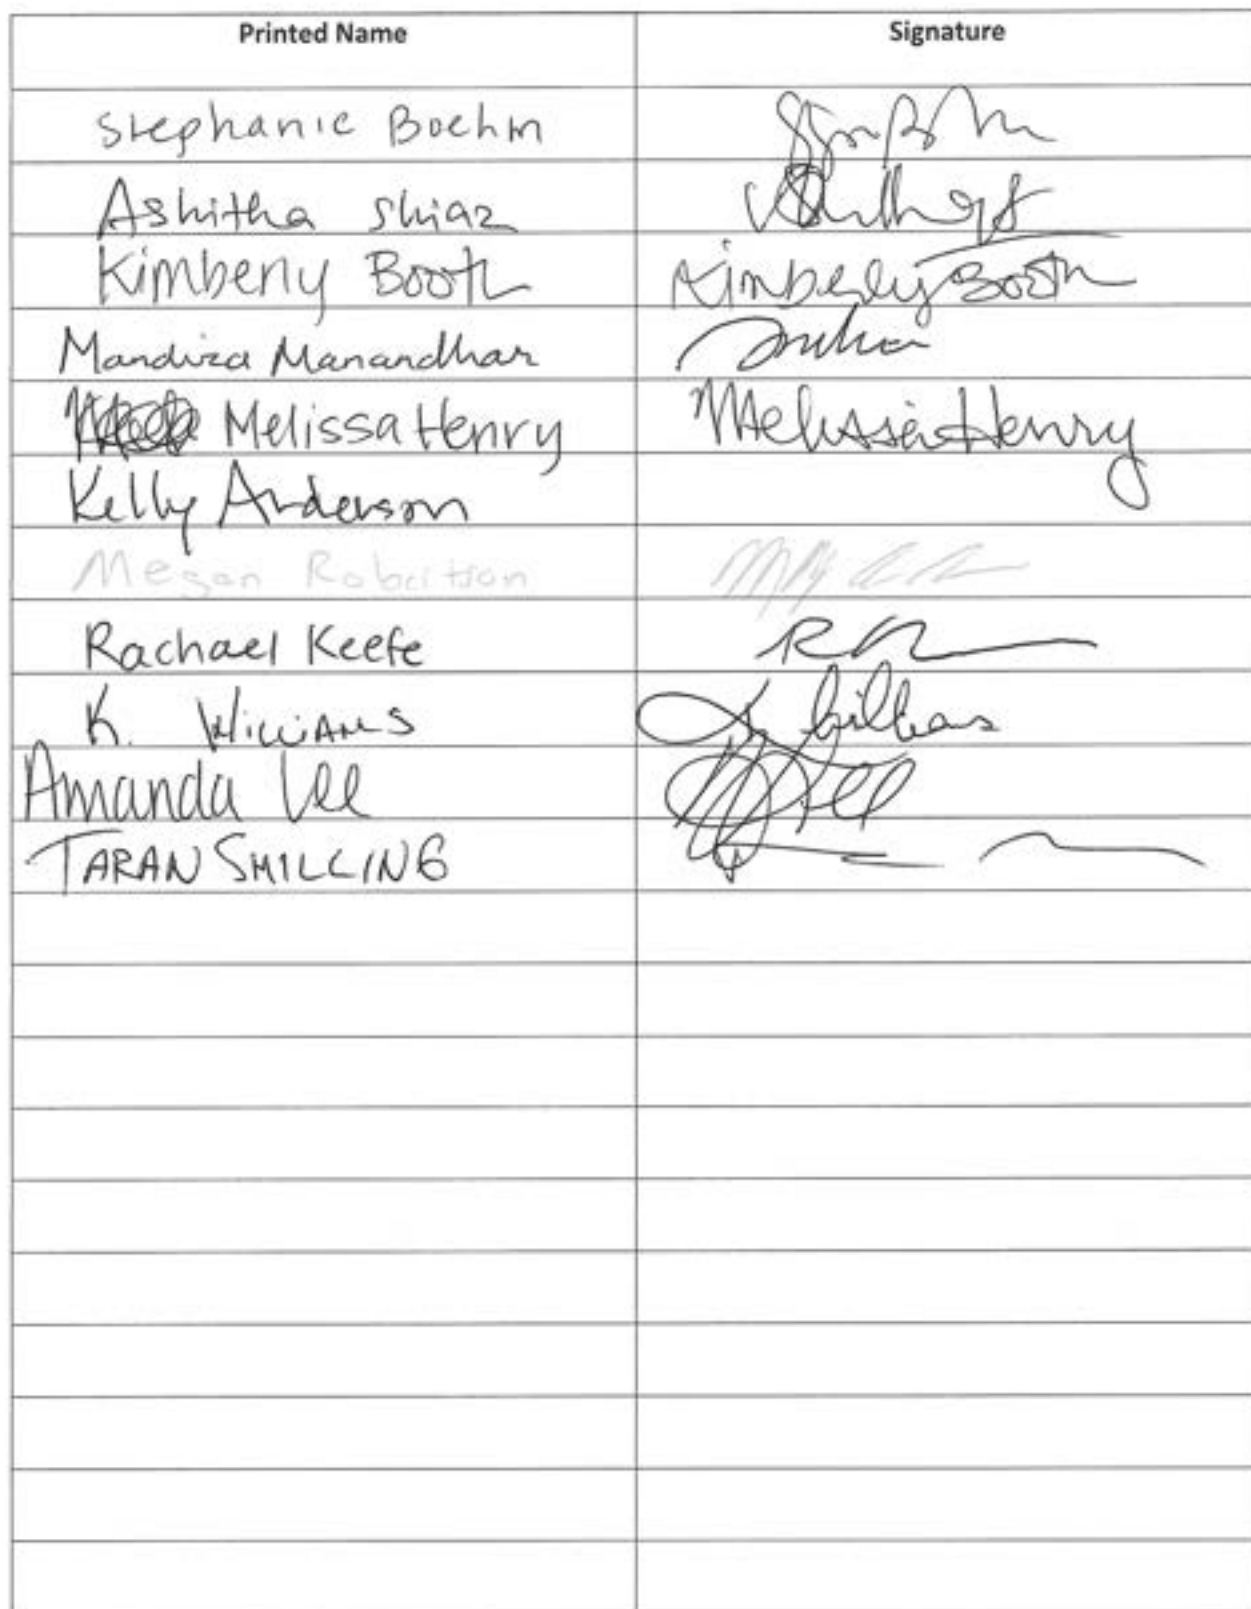 Printed Name Signature
Stephanie Boehm
Ashitha Shiaz
Kimberly Booth Kimberly Booth
Manandhar
Melissa Henry Melissa Henry
Kelly Anderson
Megan Robertson
Rachael Keefe
K. Williams
Amanda Lee
TARAN SHILLING